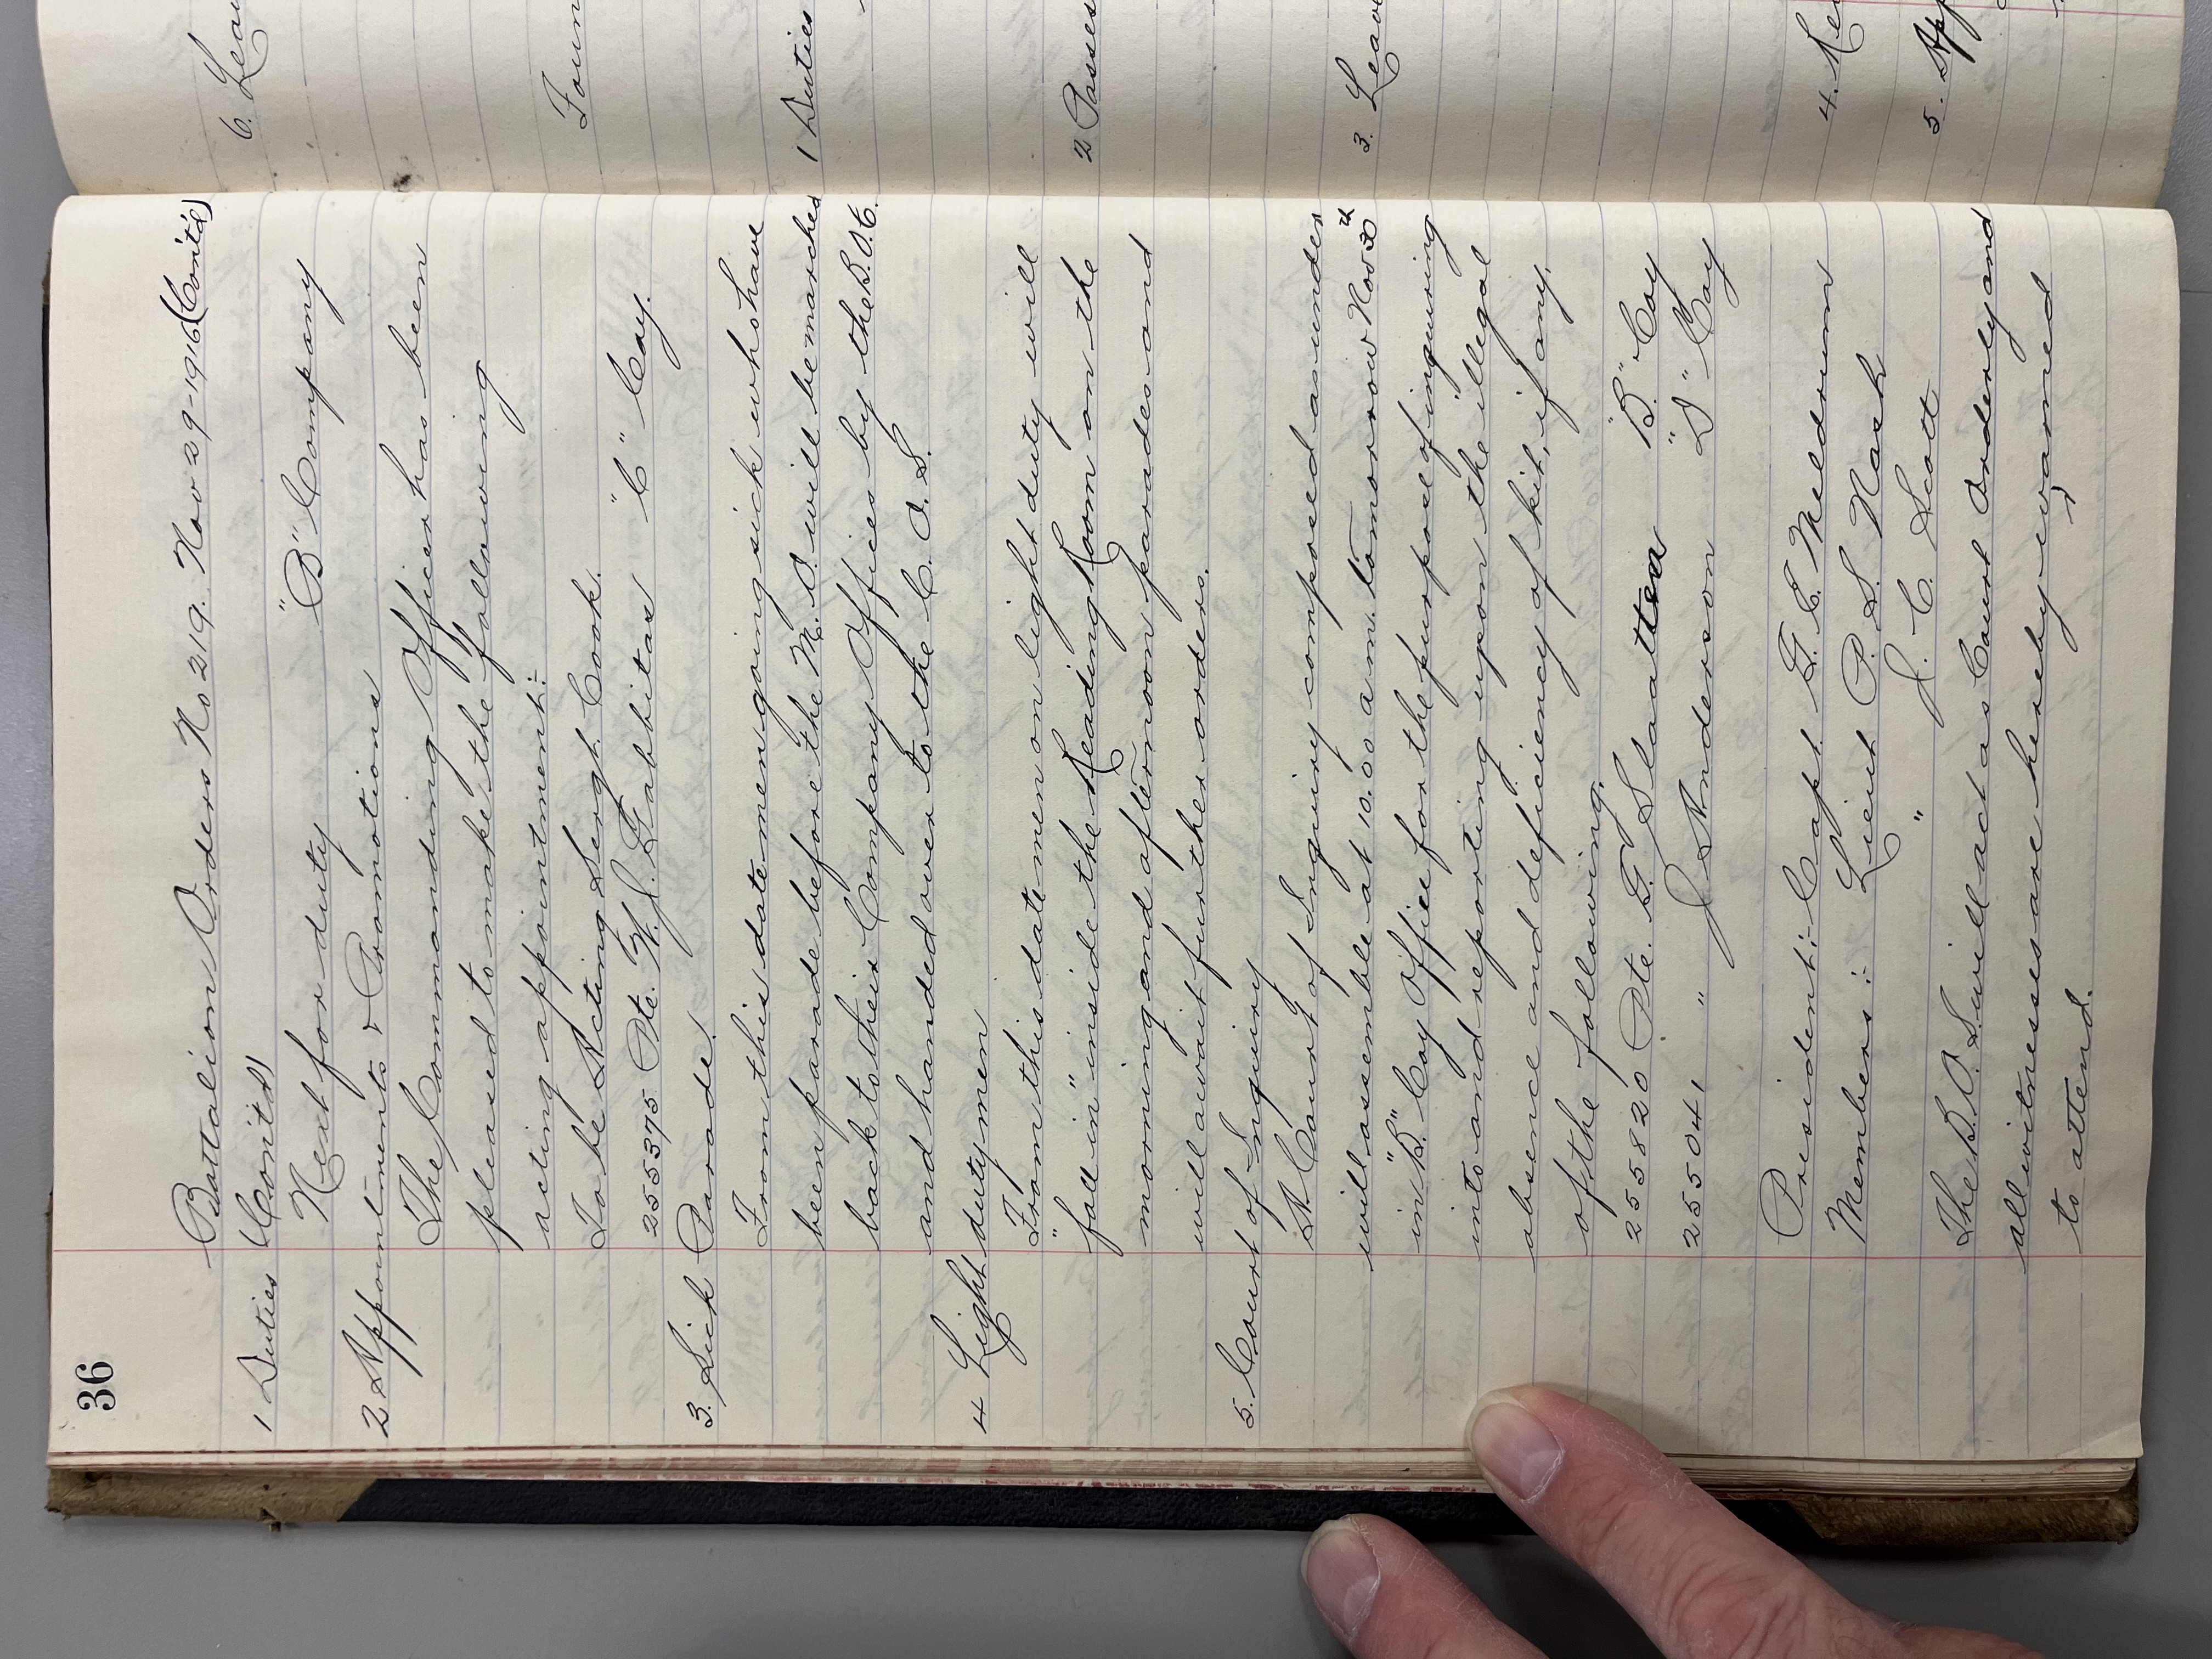 36
Battalion Orders No 219. Nov 29-1916 (Cont'd)
1 Duties (Cont'd)
Next for duty "B" Company
2 Appointments & Promotions
The Commanding Officer has been
pleased to make the following
acting appointment:-
To be Acting Sergt. Cook.
255375 Pte. W. J. Gabbitas "C" Coy.
3. Sick Parade.
From this date men going sick who have
been parade before the M. O. will be marched
back to their Company Offices by the B. O. C.
and handed over to the C. O. S.
4 Light duty men
From this date men on light duty will
"fall in" inside the Reading Room on the
morning and afternoon parades and
will await further orders.
5. Court of Inquiry
A Court of Inquiry composed as under
will assemble at 10.00 a.m. tomorrow Nov 30th
in "B" Coy Office for the purpose of inquiring
into and reporting upon the illegal
absence and deficiency of kit, if any,
of the following.
255820 Pte. G. Slatter "B" Coy
255041 " J Anderson "D" Coy
President:- Capt. G. E. Meldrum
Members:- Lieut P. S. Nash
" J. C. Scott
The B. O. S. will act as Court Orderly and
all witnesses are hereby warned
to attend.
6. Leav
1 Duties
2 Passes
3. Leave
4. Re
5. App